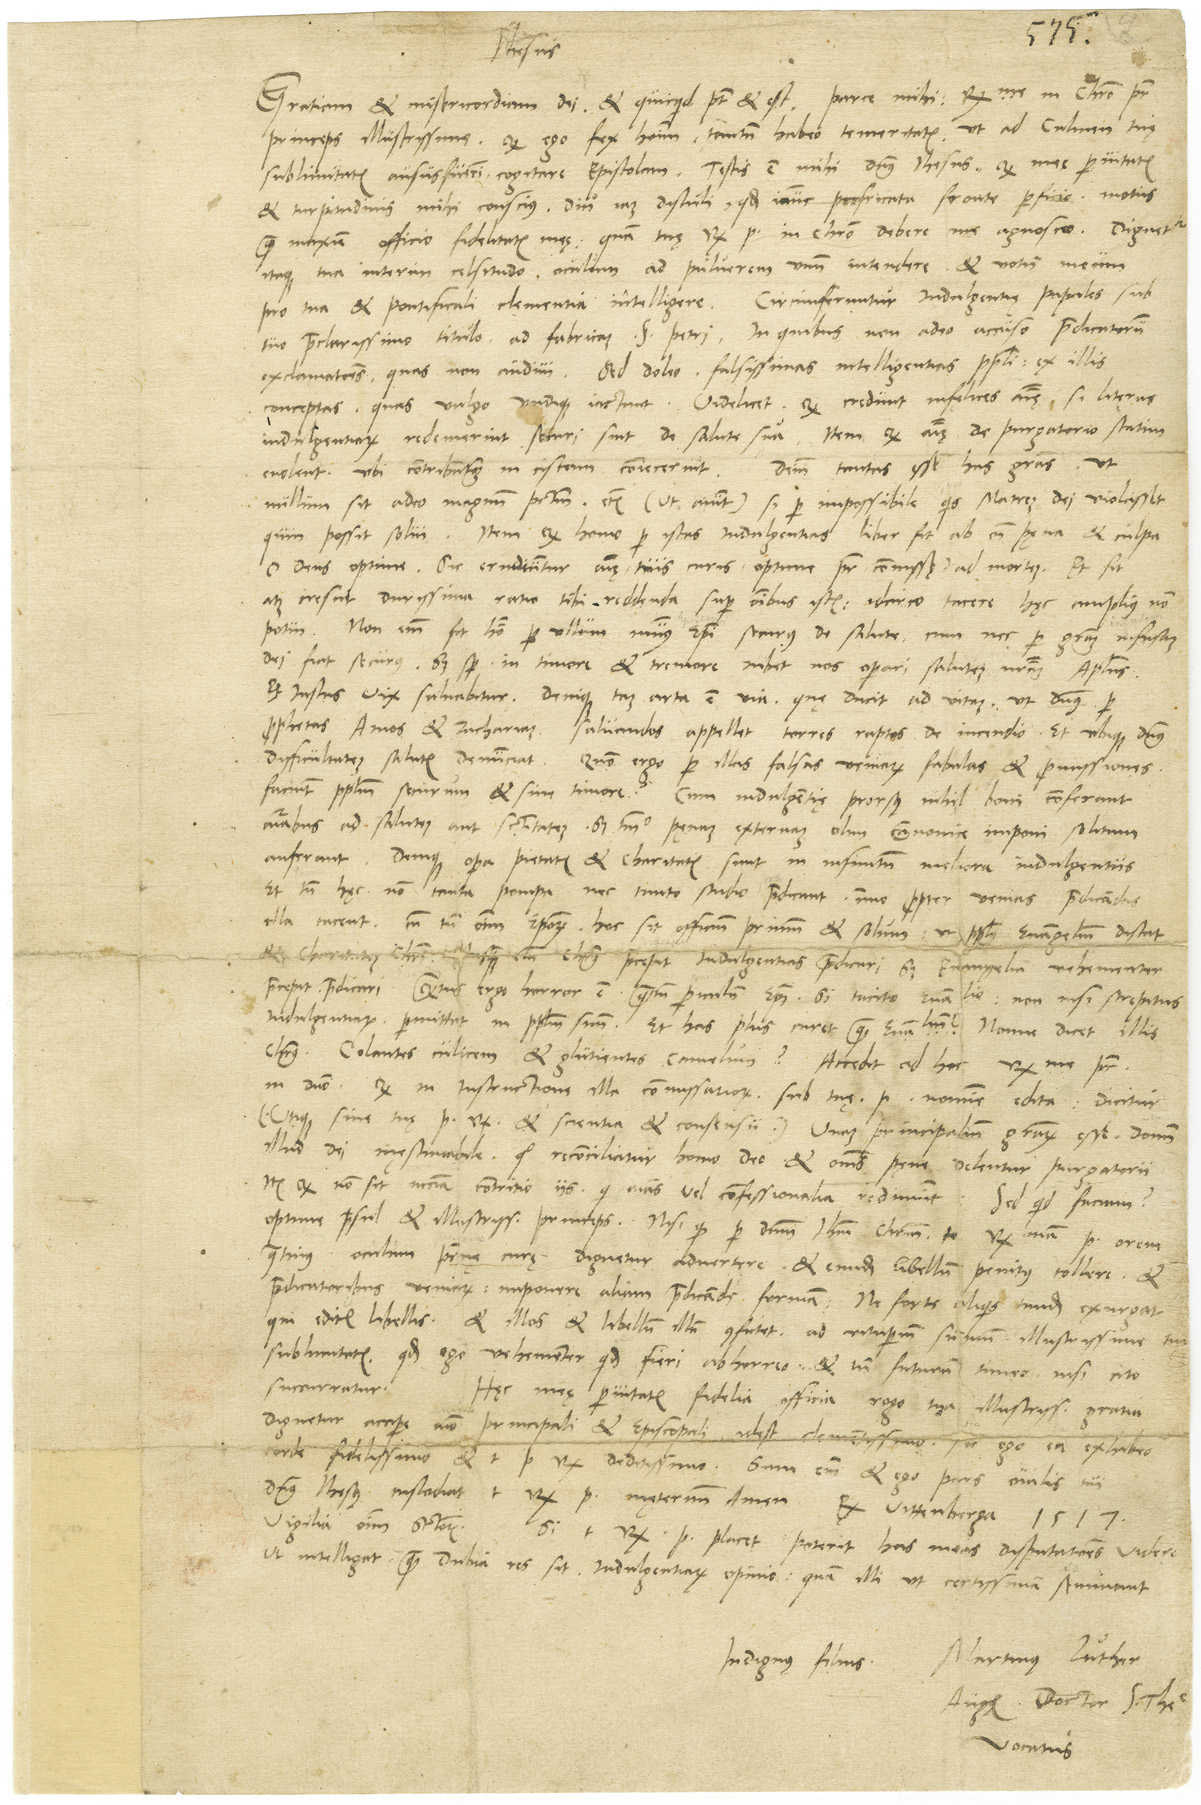 Jhesus
575.
Gratiam & misericordiam dei, & quicquid pt̄ & est. Parce mihi: Rꝫme in Chrō pr̄
princeps illustrissime, ꝙ ego fex hoīm, tantū habeo temeritatꝭ, ut ad Culmen tuę
sublimitatꝭ ausus fuerim cogitare Epistolam. Testis ē mihi dn̄s Ihesus, ꝙ mee ꝑuitatꝭ
& turpitudinis mihi conscius, diu iaꝫ distuli, qđ nunc perfricata fronte ꝑficio, motus
ꝙ maxīe officio fidelitatꝭ meę: quā tuę Rꝫ p. in Chrō debere me agnosco. Dignetr
itaqꝫ tua interim celsitudo, oculum ad puluerem unū intendere, & votū meum
pro tua & pontificali clementia intelligere. Circumferuntur Indulgentię papales sub
tuo p̄clarissimo titulo, ad fabricaꝫ S. Petri, In quibus non adeo accuso p̄dicatorum
exclamatiōes, quas non audiui. Sed doleo, falsissimas intelligentias ppl̄i: ex illis
conceptas, quas vulgo undiqꝫ iactant. Videlicet, ꝙ credunt infelices aīę, si literas
indulgentiarꝫ redemerint, securi sint de salute sua, Item ꝙ aīę de purgatorio statim
euolent, ubi contributionē in cistam coniecerint, Deīn tantas esse has grās, ut
nullum sit adeo magnū pctm̄, etiā (Ut aiunt) si ꝑ impossibile qs Matreꝫ dei violasset
quin possit solui. Item ꝙ homo ꝑ istas Indulgentias liber sit ab oī pęna & culpa
O deus optime, Sic erudiuntur aīę tuis curis, optime pr̄ cōmissę, ad morteꝫ. Et fit
atqꝫ crescit durissima ratio tibi reddenda suꝑ oībus istꝭ: idcirco tacere hęc amplius nō
potui. Non em̄ fit hō ꝑ ullum munus Ep̄i securus de salute, cum nec ꝑ grām infusaꝫ
dei fiat securus, Sꝫ sp̄ in timore & tremore iubet nos operari saluteꝫ nr̄am Apl̄us.
Et Iustus vix saluabitur. Deniqꝫ taꝫ arta ē via, quę ducit ad vitaꝫ, ut dn̄s ꝑ
ꝓphetas Amos & Zachariaꝫ, saluandos appellet torres raptos de incendio. Et ubiqꝫ dn̄s
difficultateꝫ salutꝭ denunciat. Quō ergo ꝑ illas falsas veniarꝫ fabulas & ꝓmissiones,
faciunt ppl̄m securum & sine timore? Cum indulgentię prorsus nihil boni conferant
aīabus ad saluteꝫ aut sctitateꝫ, Sꝫ tm̄o pęnaꝫ externaꝫ, olim Canonice imponi solitam
auferant. Deniqꝫ oꝑa pietatꝭ & Charitatꝭ sunt in infinitū meliora indulgentiis
Et tn̄ hęc nō tanta pompa nec tanto studio p̄dicant, immo ꝓpter venias p̄dicandas
illa tacent, cū tn̄ oīm Eporꝫ, hoc sit officium primum & solum: ut ppl̄s Euāgelium discat
& Charitateꝫ Chrī. Nusqꝫ em̄ Chrs p̄cepit Indulgentias p̄dicari, Sꝫ Euangeliū vehementer
p̄cepit p̄dicari. Quātus ergo horror ē, quātū ꝑiculū Ep̄i, Si tacito Euālio: non nisi strepitus
Indulgentiarꝫ, ꝑmittat in ppl̄m suū. Et has plus curet ꝙ Euālium? Nonne dicet illis
Chrs. Colantes culicem & glutientes Camelum? Accedit ad hoc Rꝫme pr̄.
in dn̄o, ꝙ in Instructione illa cōmissariorꝫ, sub tuę p. nomine edita: dicitur
(Utiqꝫ sine tuę p. Rꝫ & scientia & consensu.) Unaꝫ principalium grārꝫ esse, donū
illud dei inęstimabile, quo reconciliatur homo deo & omnes pęne delentur purgatorii
Itē ꝙ nō sit necessaria contritio iis, qui aīas vel confessionalia redimunt. Sed qd faciam?
optime p̄sul & illustriss. princeps. Nisi ꝙ ꝑ dn̄m Ihm̄ Chrm̄, te Rꝫ tuam p. orem
quatinus oculum paternę curę dignetur aduertere, & eundē libellū penitus tollere, &
p̄dicatoribus veniarꝫ: imponere aliam p̄dicandi formā, Ne forte aliqs tandē exurgat
qui editꝭ libellis, & illos & libellū illū confutet, ad vituperium summum illustrissime tue
sublimitatꝭ, qđ ego vehementer quidē fieri abhorreo, & tn̄ futurū timeo, nisi cito
succurratur. Hęc meę ꝑuitatꝭ fidelia officia rogo tua illustriss. gratia
dignetur accipere mō principali & Episcopali idest clementissimo. Sic ego ea exhibeo
corde fidelissimo & t p Rꝫ deditissimo. Sum em̄ & ego pars ouilis tui
dn̄s Ihesus custodiat t Rꝫ p. inęternū Amen Ex Vittenberga 1517.
Vigilia oīm Sctorꝫ. Si t Rꝫ. p. placet poterit has meas disputatiōes videre
Ut intelligat, ꝙ dubia res sit, Indulgentiarꝫ opinio: quā illi ut certissimā seminant
Indignus filius. Martinus Luther
Augꝭ. Doctor S. The
Vocatus